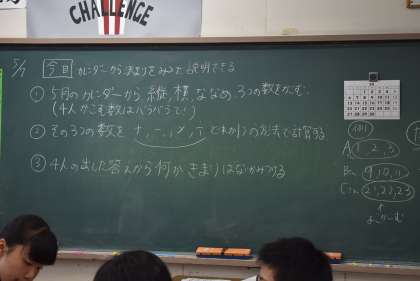 CHALLENGE
5/7 今日 カレンダーからきまりをみつけ説明できる
① 5月のカレンダーから 縦,横,ななめ 3つの数をかこむ。
(4人がこむ数はバラバラで!)
② その3つの数を +, -, ×, ÷ どれか1つの方法で計算する
③ 4人の出した答えから何か きまりはないかみつける
(例)
A 1, 2, 3
B 9, 10, 11
C 21, 22, 23
よこかこむ